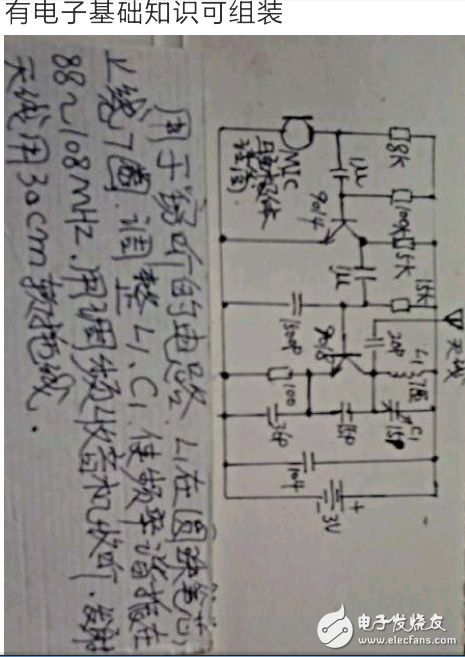 有电子基础知识可组装
用于窃听的电路. L1在圆珠笔芯
上绕7圈.调整L1、C1使频率谐振在
88~108MHz.用调频收音机收听.发射
天线用30cm软拖线.
MIC
8K
1U
9014
100K
5K
1U
15K
天线
1500P
9018
20P
L1
7圈
100
C1
15P
104
3V
+
电子发烧友
www.elecfans.com